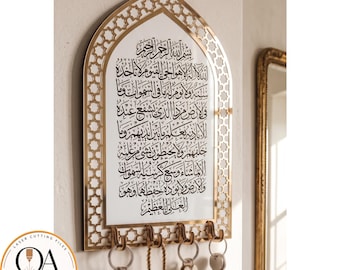 بسم الله الرحمن الرحيم
الله لا إله إلا هو الحي القيوم لا تأخذه
سنة ولا نوم له ما في السموات وما
في الأرض من ذا الذي يشفع عنده
إلا بإذنه يعلم ما بين أيديهم وما
خلفهم ولا يحيطون بشيء من علمه
إلا بما شاء وسع كرسيه السموات
والأرض ولا يؤده حفظهما وهو
العلي العظيم
QA
LASER CUTTING FILES